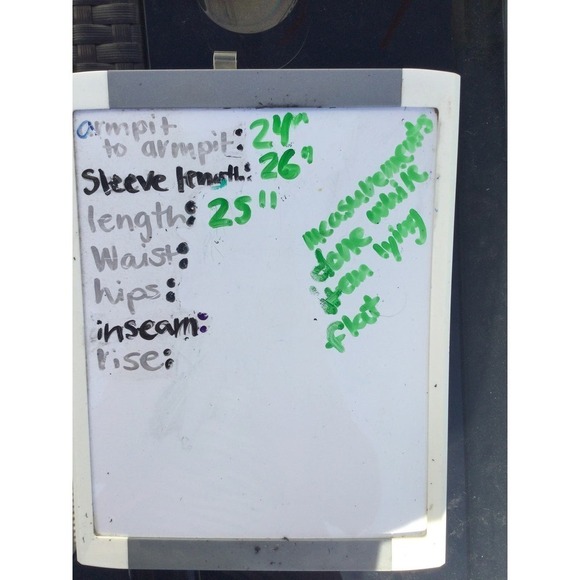 armpit
to armpit: 24"
Sleeve length: 26"
length: 25"
Waist:
hips:
inseam:
rise:
measurements
done while
item lying
flat